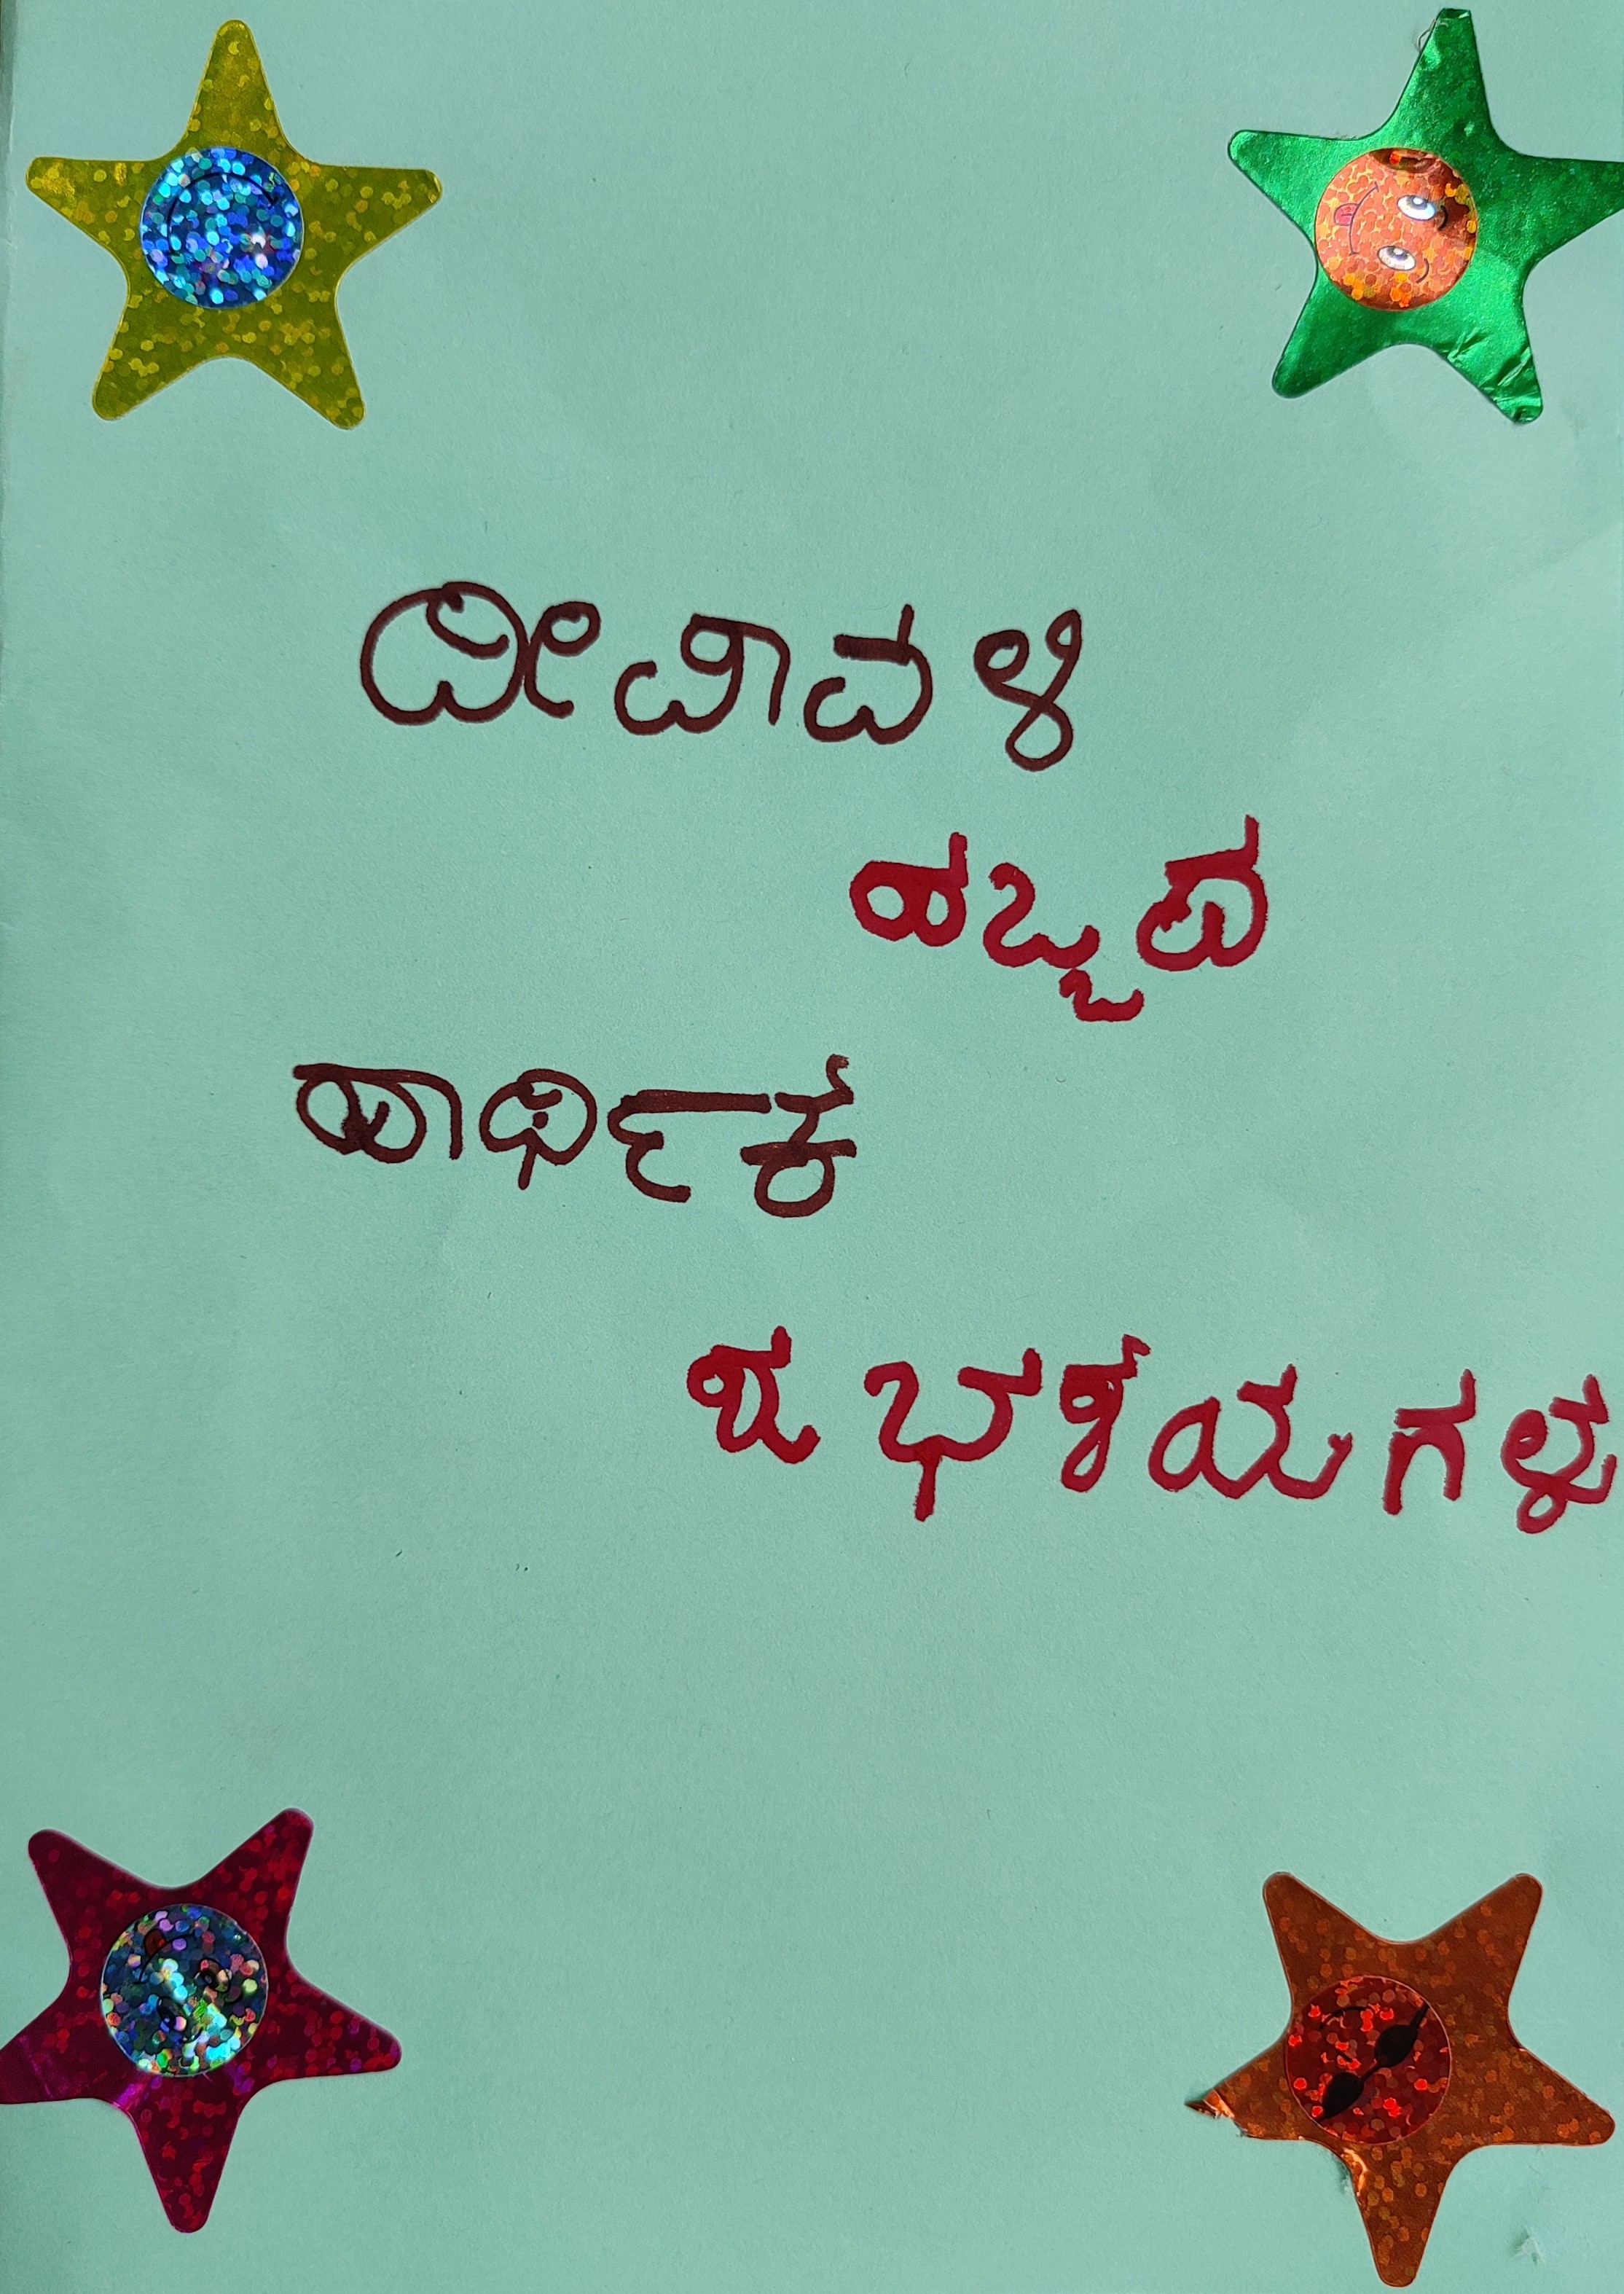 ದೀಪಾವಳಿ
ಹಬ್ಬದ
ಹಾರ್ಥಿಕ
ಶುಭಶಯಗಳು